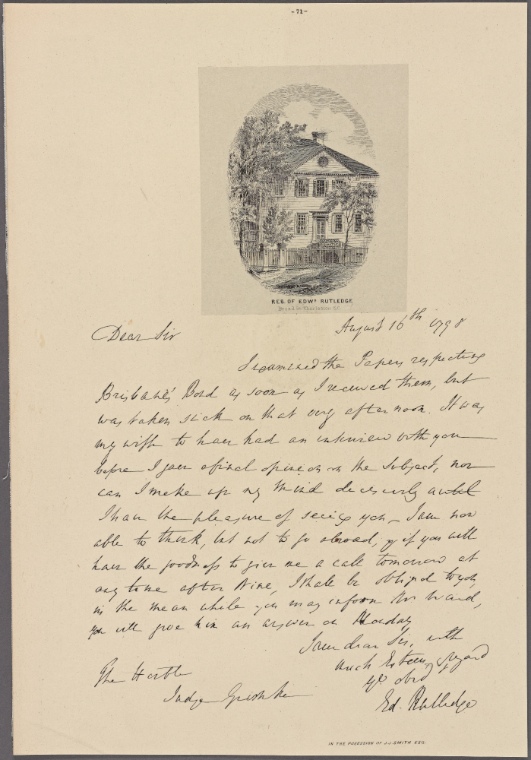 -71-
RES. OF EDWD RUTLEDGE
Broad St Charleston
August 16th 1798
Dear Sir
I examined the Papers respecting
Brisbane's Bond as soon as I received them, but
was taken sick on that very afternoon. It was
my wish to have had an interview with you
before I gave a final opinion on the subject, nor
can I make up my mind decisively until
I have the pleasure of seeing you, I am now
able to think, but not to go abroad, & if you will
have the goodness to give me a call tomorrow at
any time after Nine, I shall be obliged to you
in the mean while you may inform Mr Ward,
you will give him an answer on Monday
I am dear Sir, with
much Esteem & regard
Yr obed
Ed. Rutledge
The Honble
Judge Grimke
IN THE POSSESSION OF J.J. SMITH ESQ.